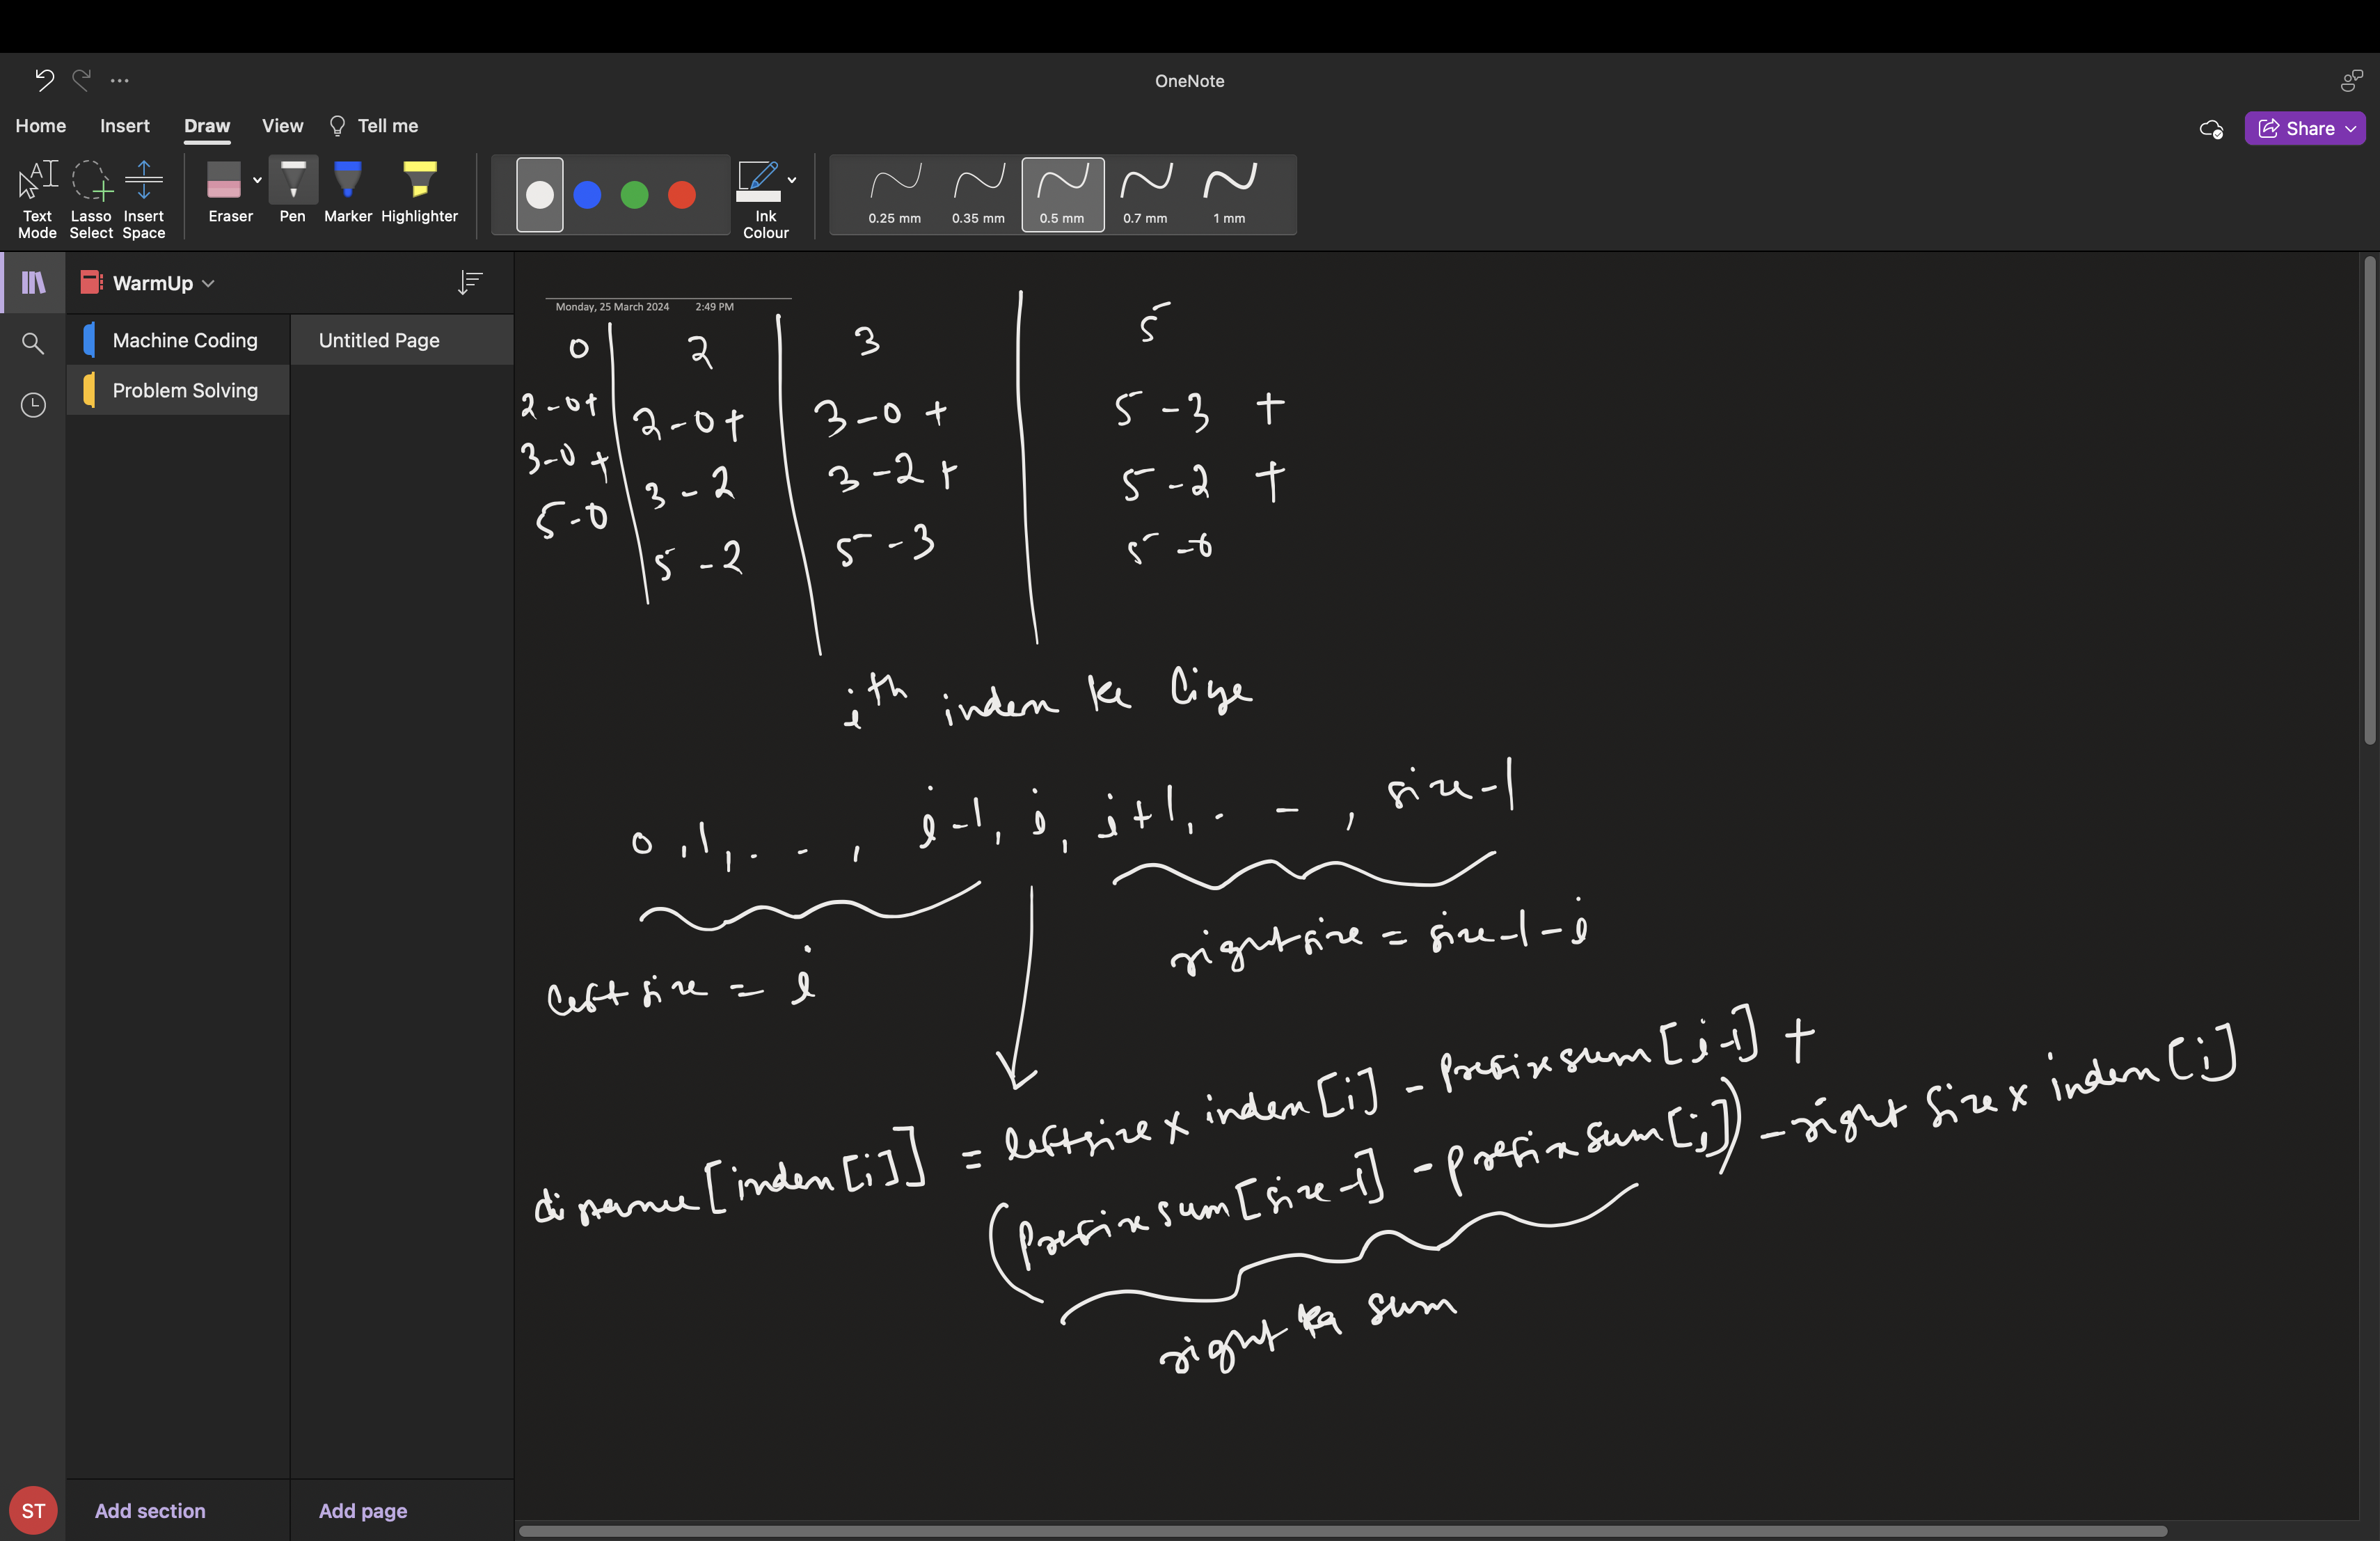 OneNote
Home Insert Draw View Tell me
Share
Text Mode
Lasso Select
Insert Space
Eraser
Pen
Marker
Highlighter
Ink Colour
0.25 mm
0.35 mm
0.5 mm
0.7 mm
1 mm
WarmUp
Machine Coding
Problem Solving
Untitled Page
Monday, 25 March 2024 2:49 PM
0 2 3 5
2-0+ 2-0+ 3-0+ 5-3 +
3-0+ 3-2 3-2+ 5-2 +
5-0 5-2 5-3 5-0
ith index ke liye
0,1,. - , i-1, i, i+1,. - , size-1
leftsize = i
rightsize = size-1-i
distance[index[i]] = leftsize x index[i] - Prefixsum[i-1] +
(Prefixsum[size-1] - prefixsum[i]) - right size x index[i]
right ka sum
ST
Add section
Add page